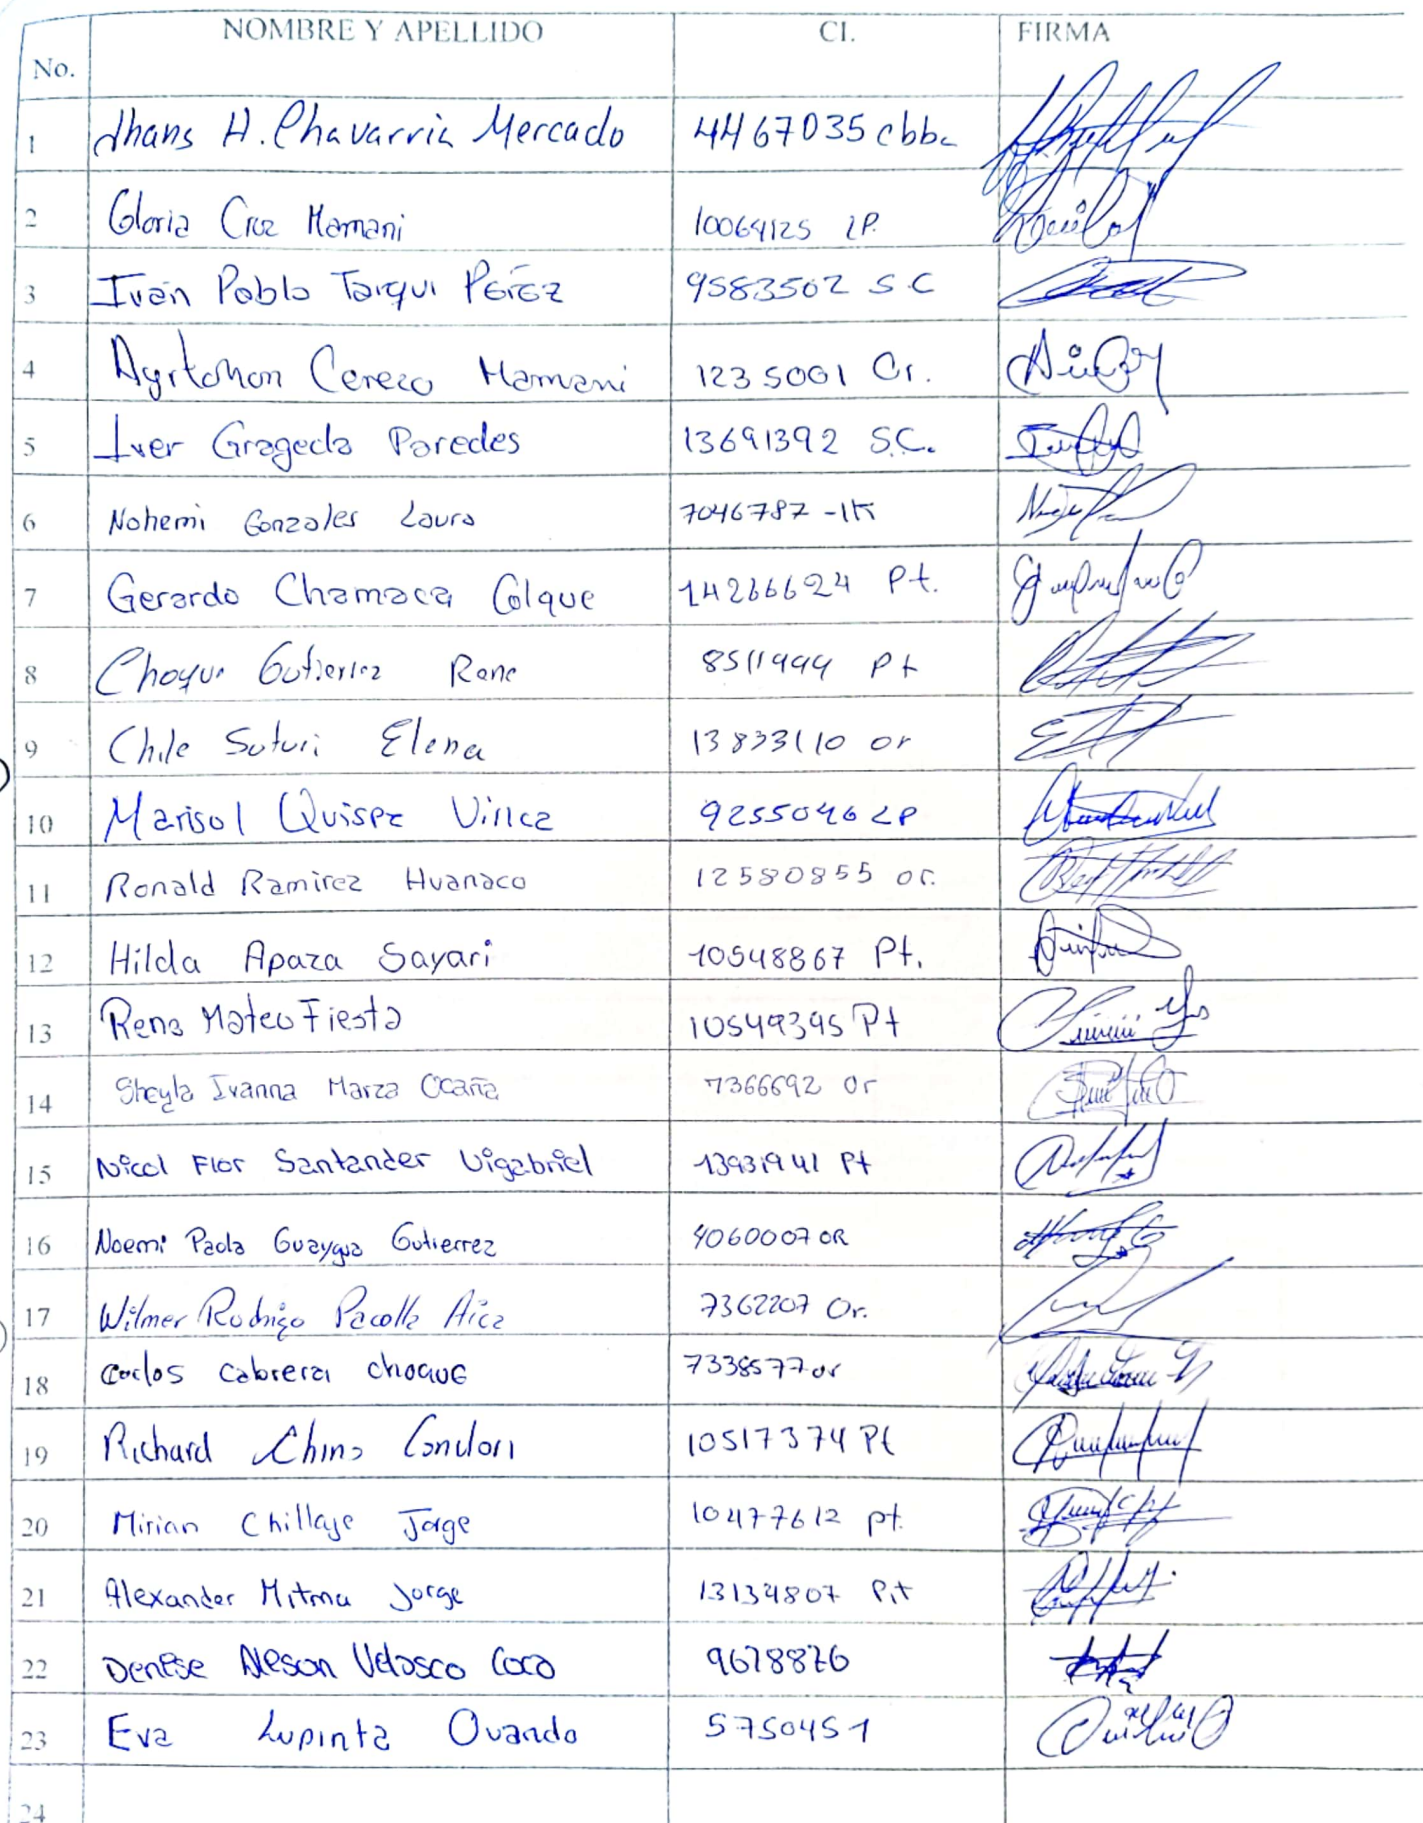 NOMBRE Y APELLIDO CI. FIRMA
No.
1 Jhans H. Chavarria Mercado 4467035 cbba
2 Gloria Cruz Mamani 10064125 LP.
3 Iván Pablo Tarqui Pérez 9583502 S.C
4 Ayrtohon Cerezo Mamani 1235001 Or.
5 Iver Grageda Paredes 13691392 S.C.
6 Nohemi Gonzales Laura 7046787 -1K
7 Gerardo Chamaca Colque 14266624 Pt.
8 Choque Gutierrez Rene 8511999 Pt
9 Chile Suturi Elena 13833110 or
10 Marisol Quispe Villca 9255046 LP
11 Ronald Ramirez Huanaco 12580855 or.
12 Hilda Apaza Sayari 10548867 Pt.
13 Rene Mateo Fiesta 10549395 Pt
14 Sheyla Ivanna Marza Ocaña 7366692 Or
15 Nicol Flor Santander Vigabriel 13931941 Pt
16 Noemi Paola Guaygua Gutierrez 4060007 OR
17 Wilmer Rodrigo Pacolla Aica 7362207 Or.
18 Carlos Cabrera choque 7338577 or
19 Richard Chino Condori 10517374 Pt
20 Mirian Chillaje Jorge 10477612 pt.
21 Alexander Mitma Jorge 13134807 P.t
22 Denise Alison Velasco Coca 9678876
23 Eva Lupinta Ovando 5750451
24